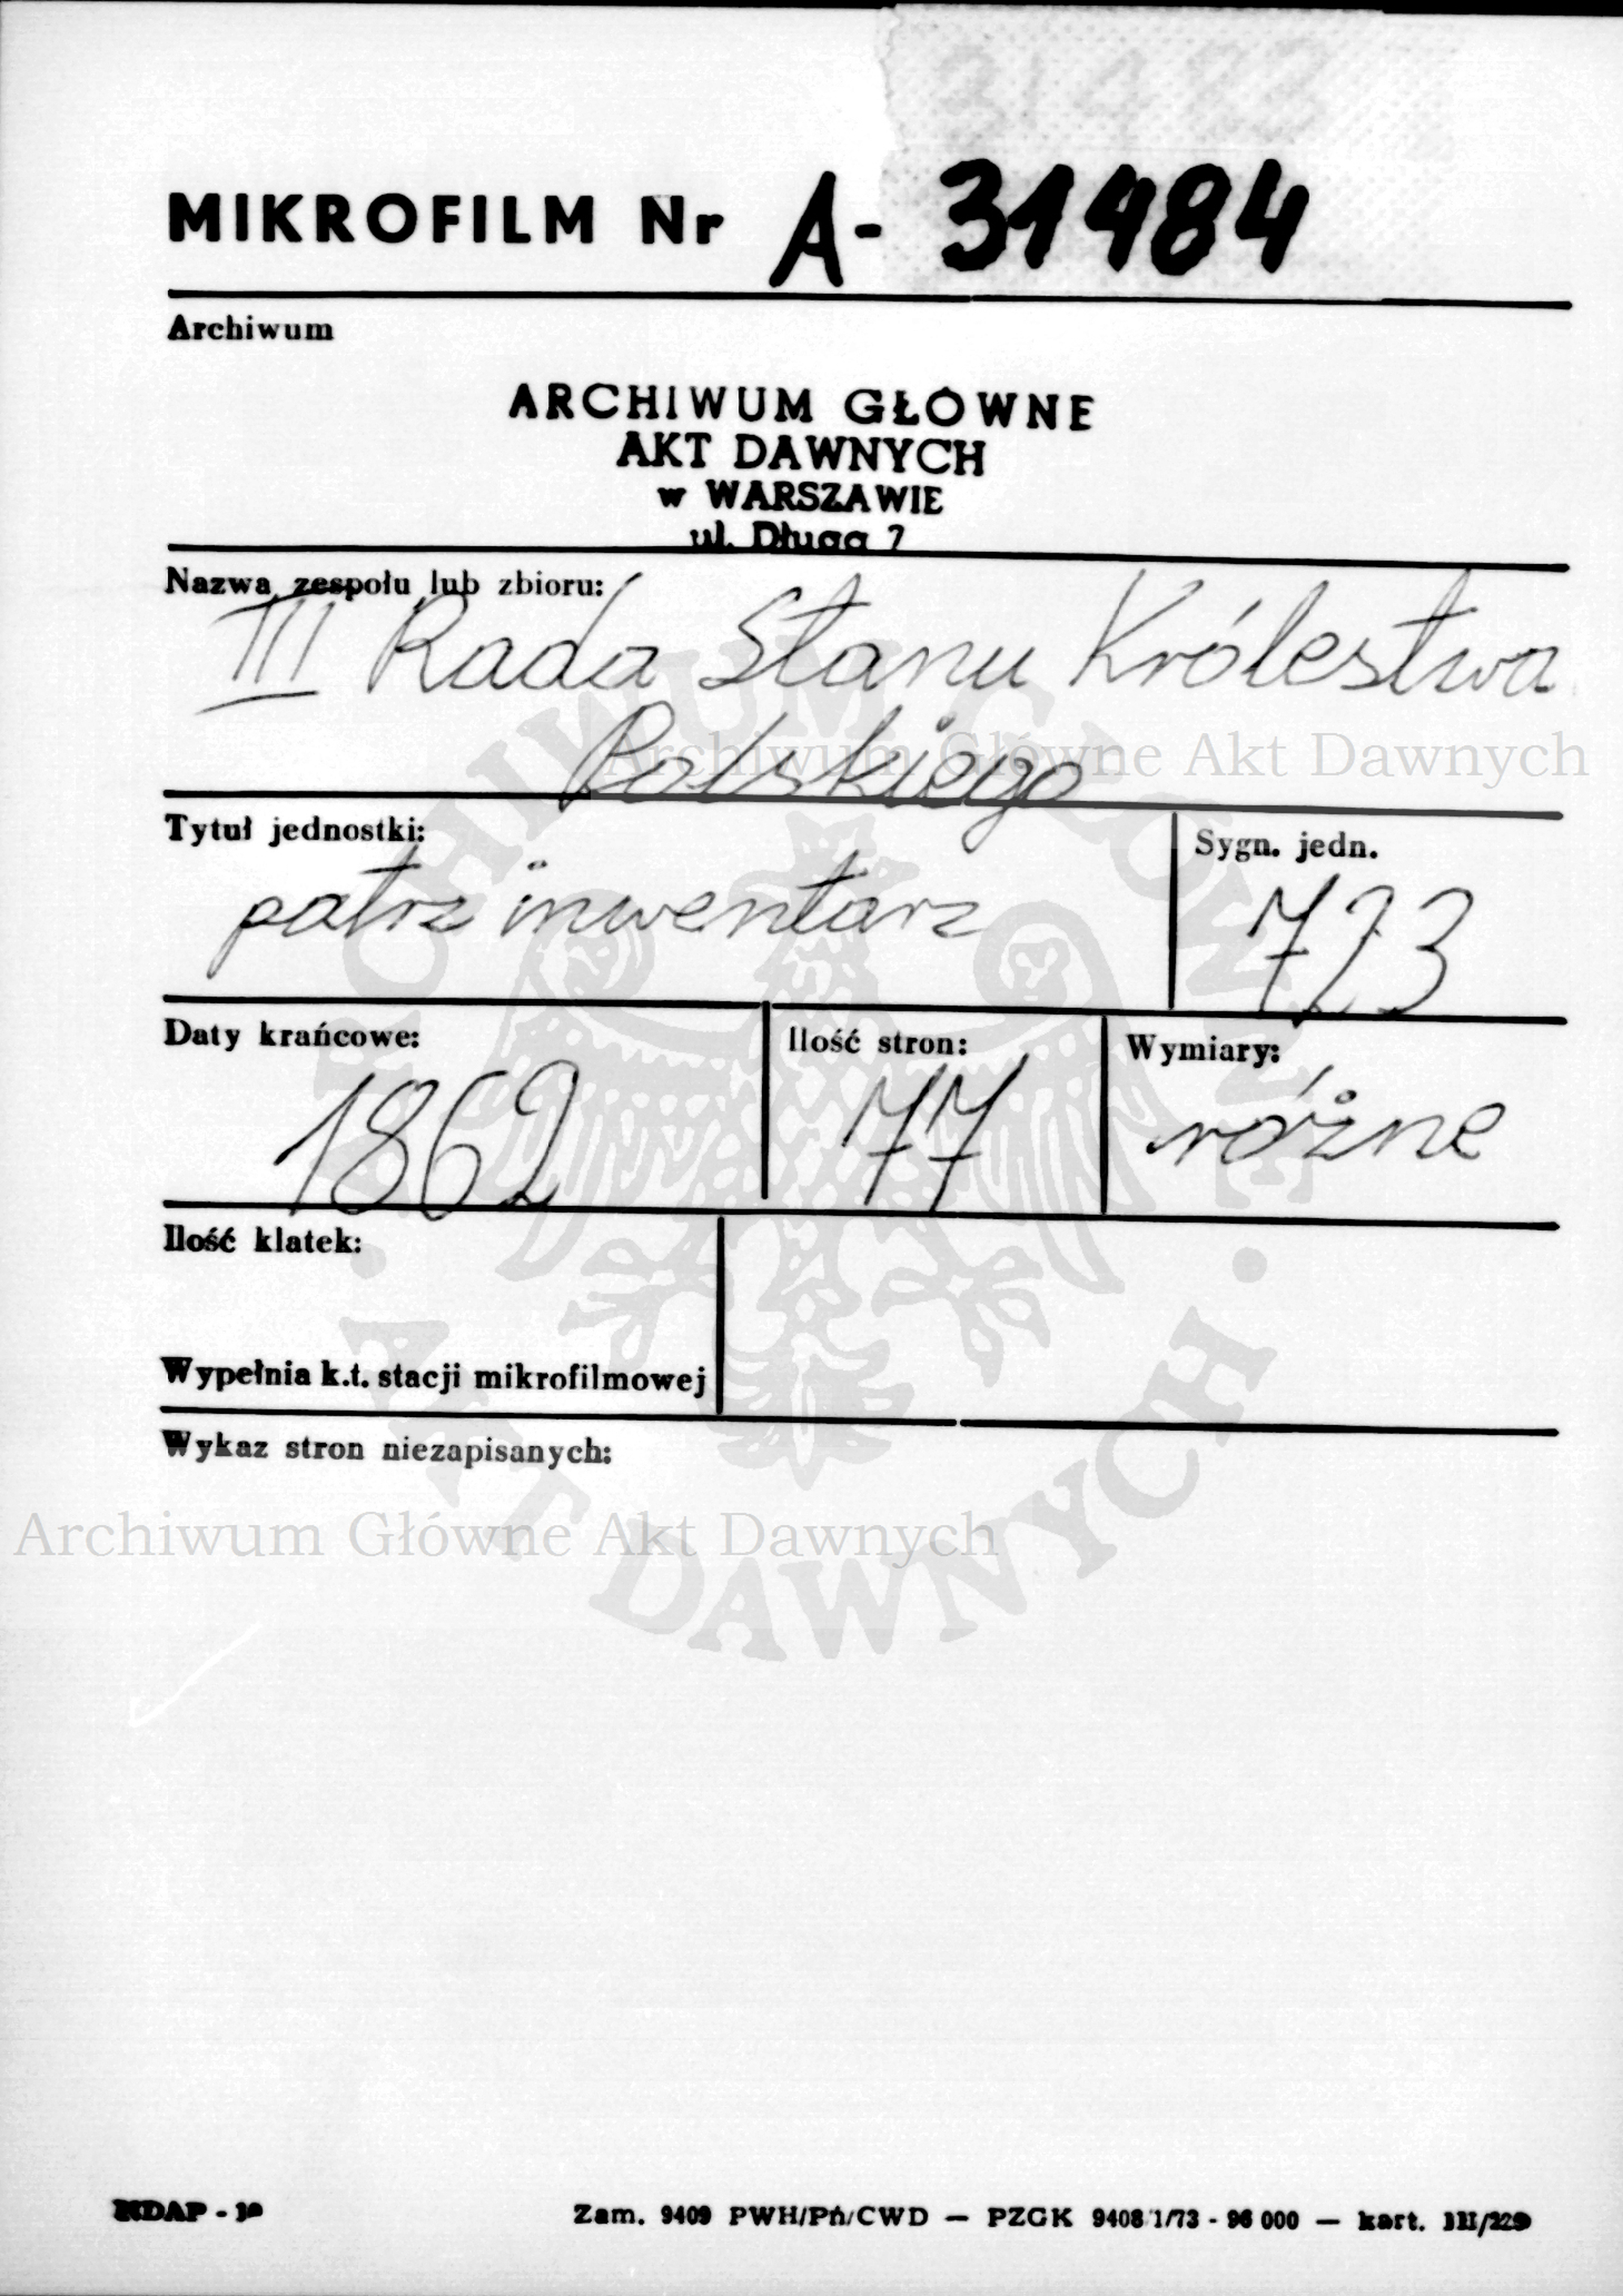 MIKROFILM Nr A- 31484
Archiwum
ARCHIWUM GŁÓWNE
AKT DAWNYCH
w WARSZAWIE
ul. Długa 7
Nazwa zespołu lub zbioru:
III Rada Stanu Królestwa
Polskiego
Archiwum Główne Akt Dawnych
Tytuł jednostki:
patrz inwentarz
Sygn. jedn.
723
Daty krańcowe:
1862
Ilość stron:
77
Wymiary:
różne
Ilość klatek:
Wypełnia k.t. stacji mikrofilmowej
Wykaz stron niezapisanych:
Archiwum Główne Akt Dawnych
ARCHIWUM GŁÓWNE · AKT DAWNYCH ·
NDAP - 10
Zam. 9409 PWH/Pń/CWD — PZGK 9408/1/73 - 96 000 — kart. III/229